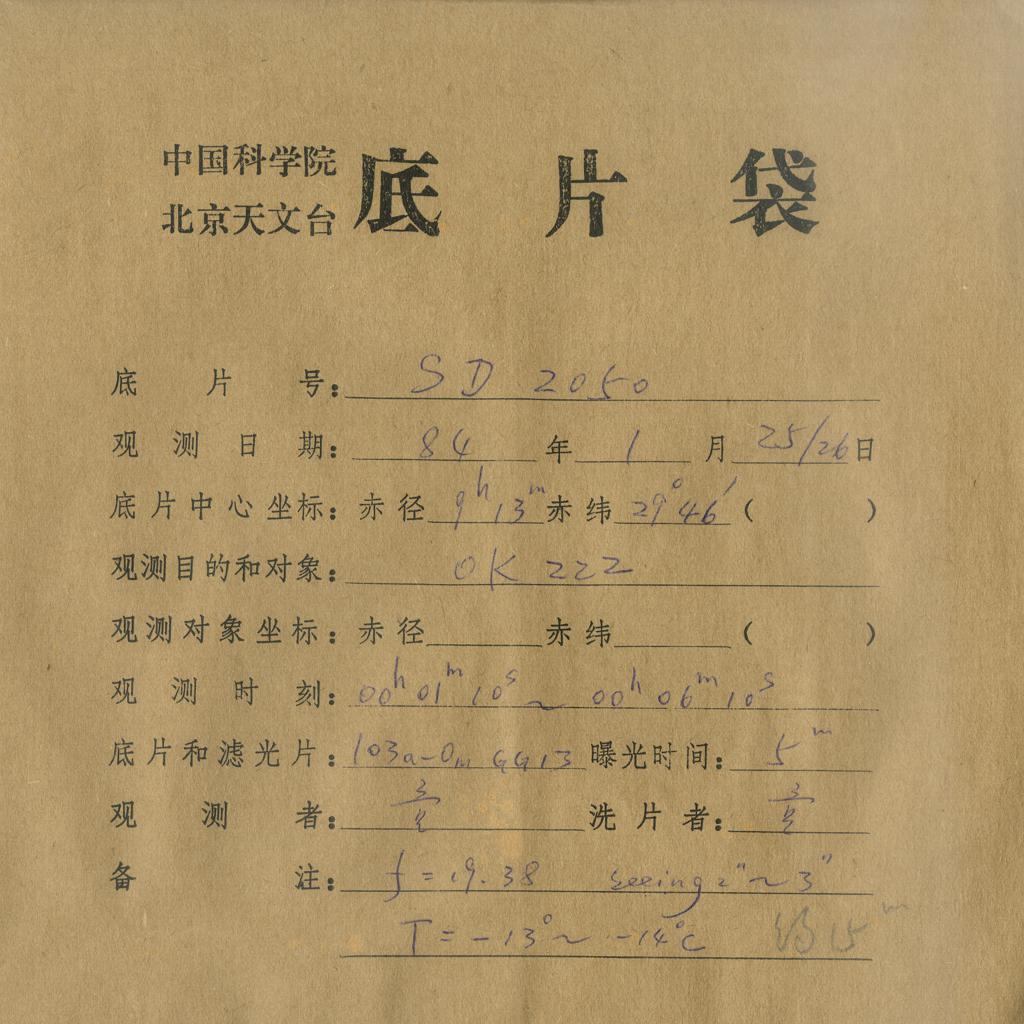 中国科学院
北京天文台
底片袋
底片号：SD 2050
观测日期：84年1月25/26日
底片中心坐标：赤径 9h13m 赤纬 29°46′（ ）
观测目的和对象：OK 222
观测对象坐标：赤径 赤纬 （ ）
观测时刻：00h01m10s ~ 00h06m10s
底片和滤光片：103a-Om GG13 曝光时间：5m
观测者： 洗片者：
备注：f = 19.38 seeing 2″~3″
T = -13°~ -14°C 约15m